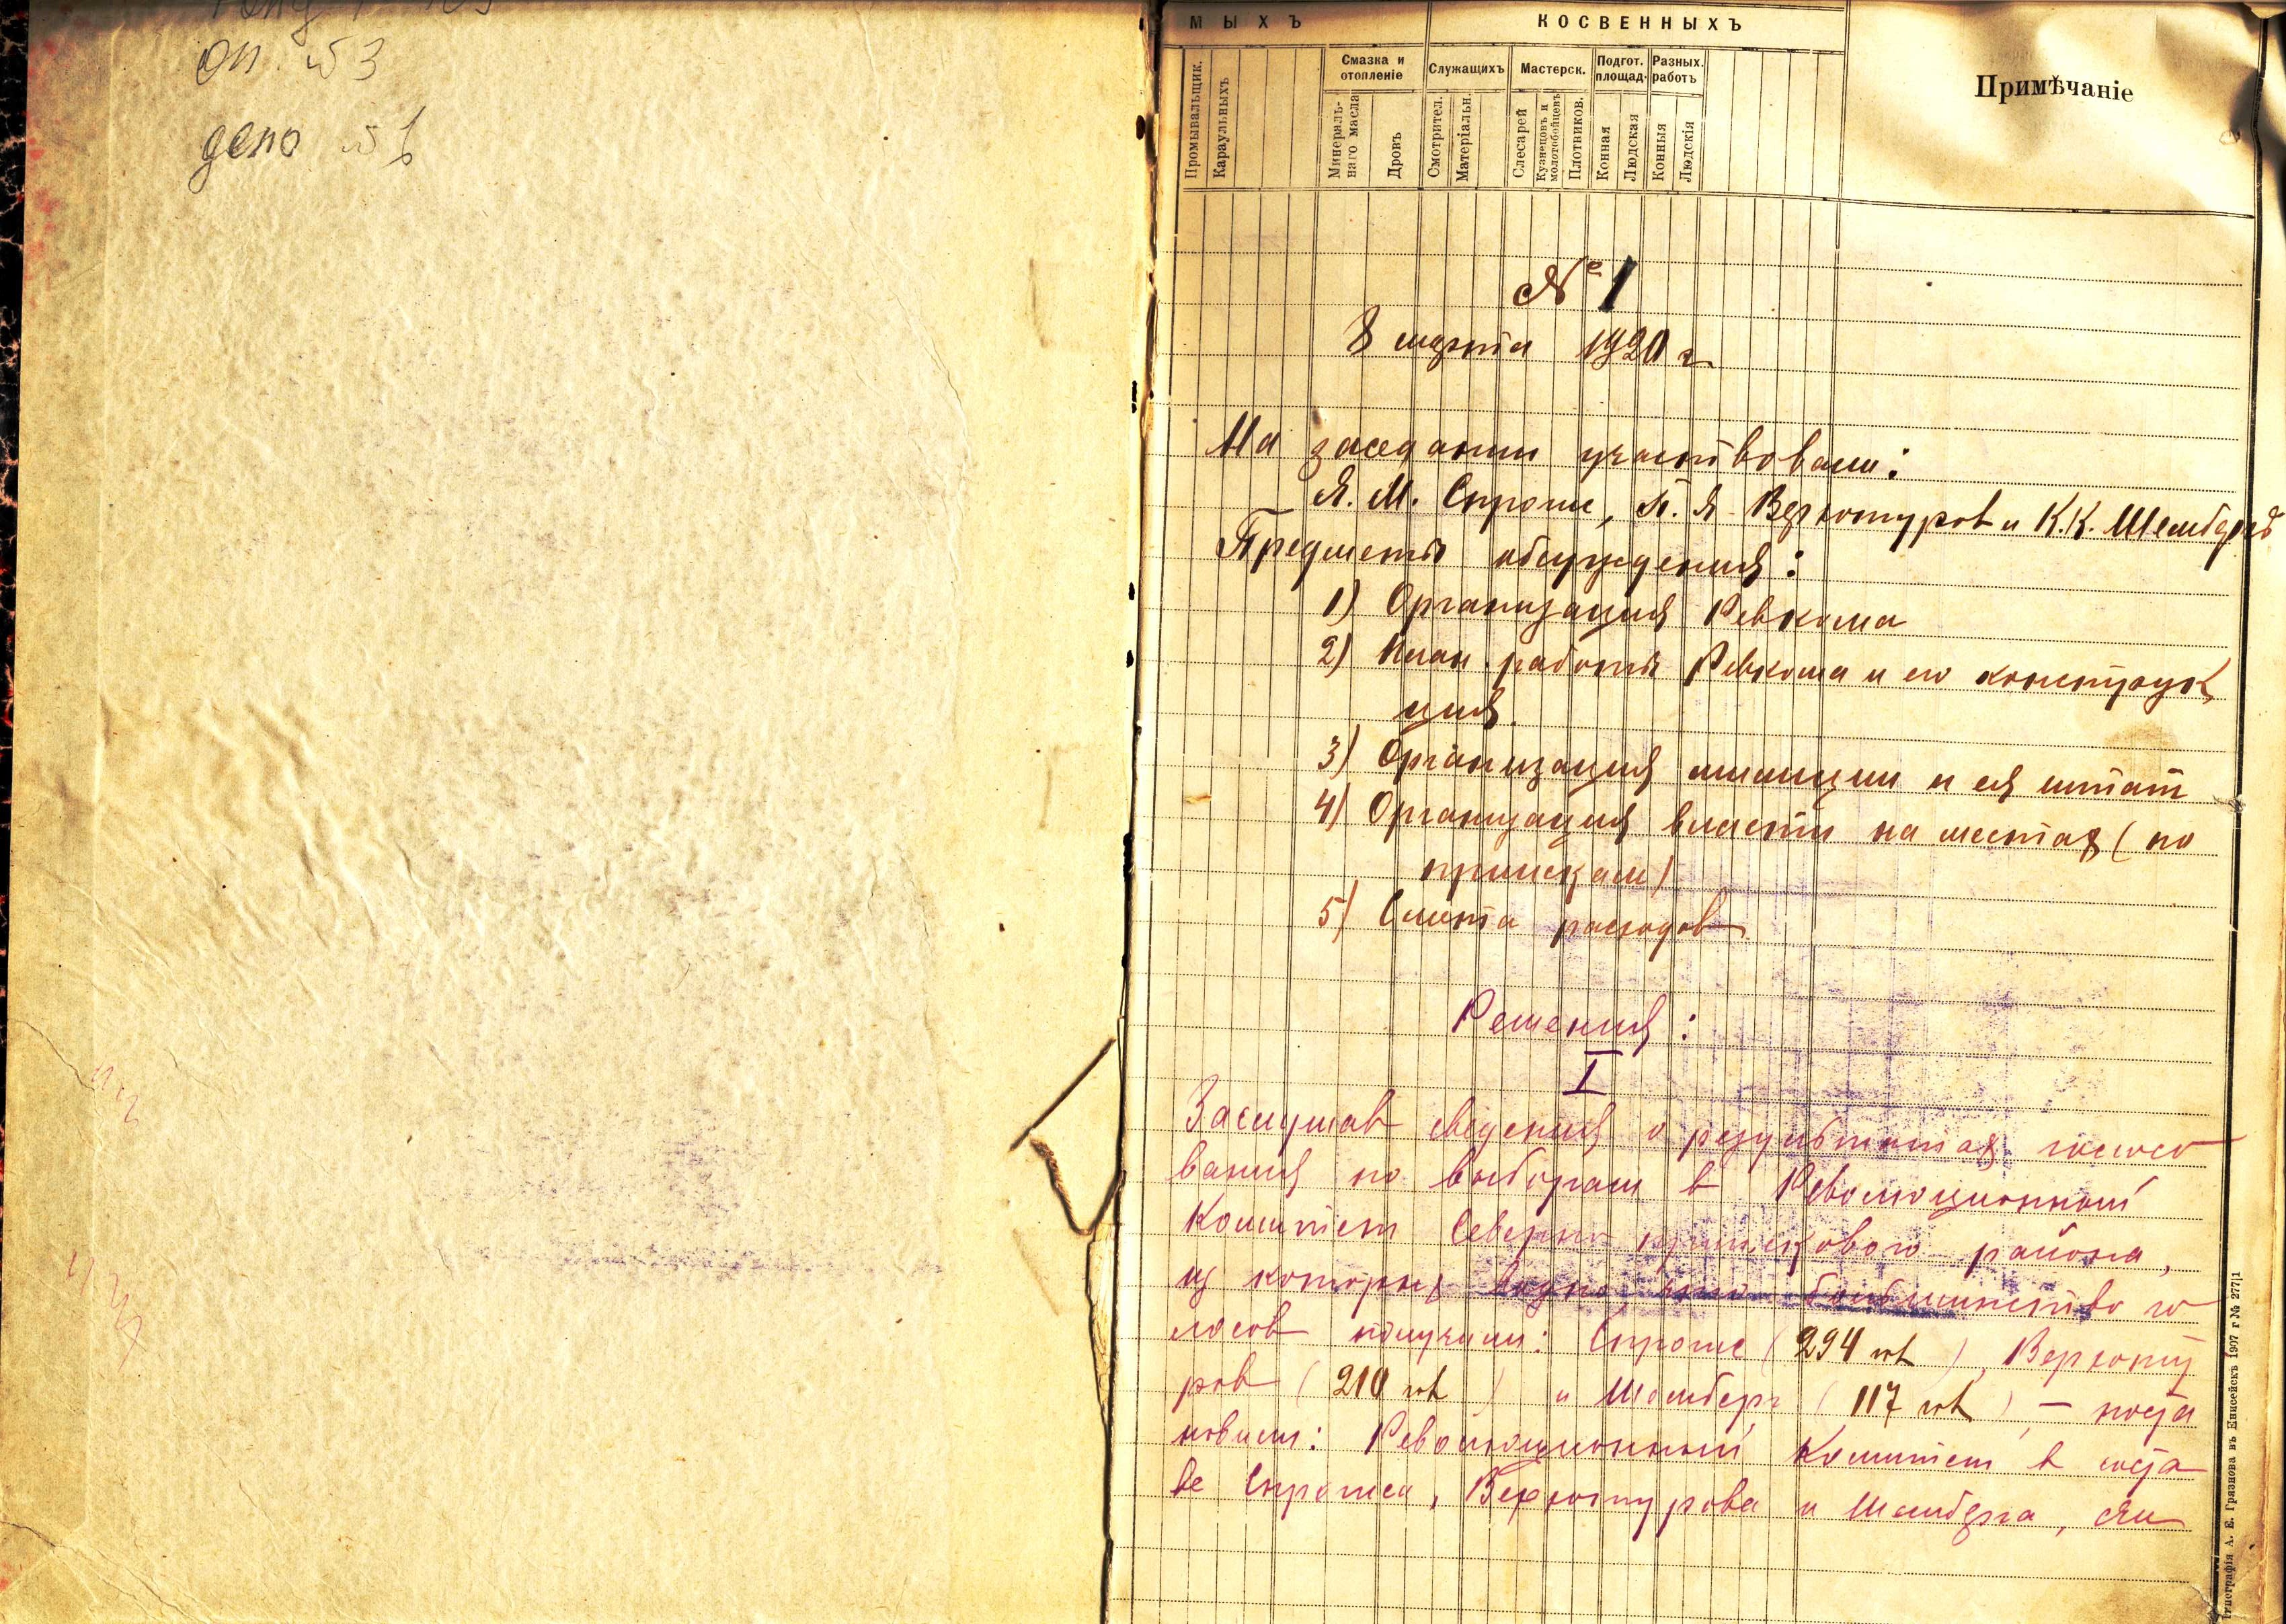 оп. №3
дело №1
МЫХЪ
КОСВЕННЫХЪ
Примѣчаніе
Смазка и отопленіе
Служащихъ
Мастерск.
Подгот. площад.
Разных. работъ
Промывальщик.
Караульныхъ
Минераль-наго масла
Дровъ
Смотрител.
Матеріальн.
Слесарей
Кузнецовъ и молотобойцевъ
Плотников.
Конная
Людская
Конныя
Людскія
№ 1
8 марта 1920 г
На заседании участвовали:
Я. М. Спроге, П. Я. Верхотуров и К.К. Шемберг
Предметы обсуждения:
1) Организация Ревкома
2) План работы Ревкома и его конструк
ция.
3) Организация милиции и ея штат
4) Организация власти на местах (по
приискам)
5) Смета расходов
Решения:
I
Заслушав сведения о результатах голосо
вания по выборам в Революционный
Комитет Северно приискового района,
из которых видно, что большинство го
лосов получили: Спроге (294 гол), Верхоту
ров (210 гол) и Шемберг (117 гол), – поста
новили: Революционный Комитет в соста
ве Спроге, Верхотурова и Шемберга,
Типографія А. Е. Грязнова въ Енисейскъ 1907 г № 277|1